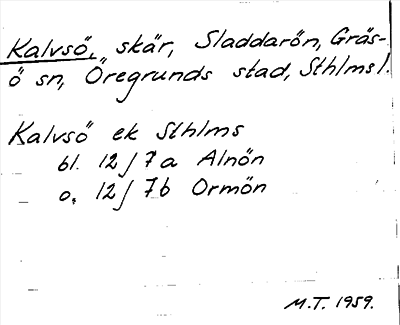 Kalvsö, skär, Sladdarön, Gräs-
ö sn, Öregrunds stad, Sthlms l.
Kalvsö ek Sthlms
bl. 12 J 7a Alnön
o. 12 J 7b Ormön
M.T. 1959.